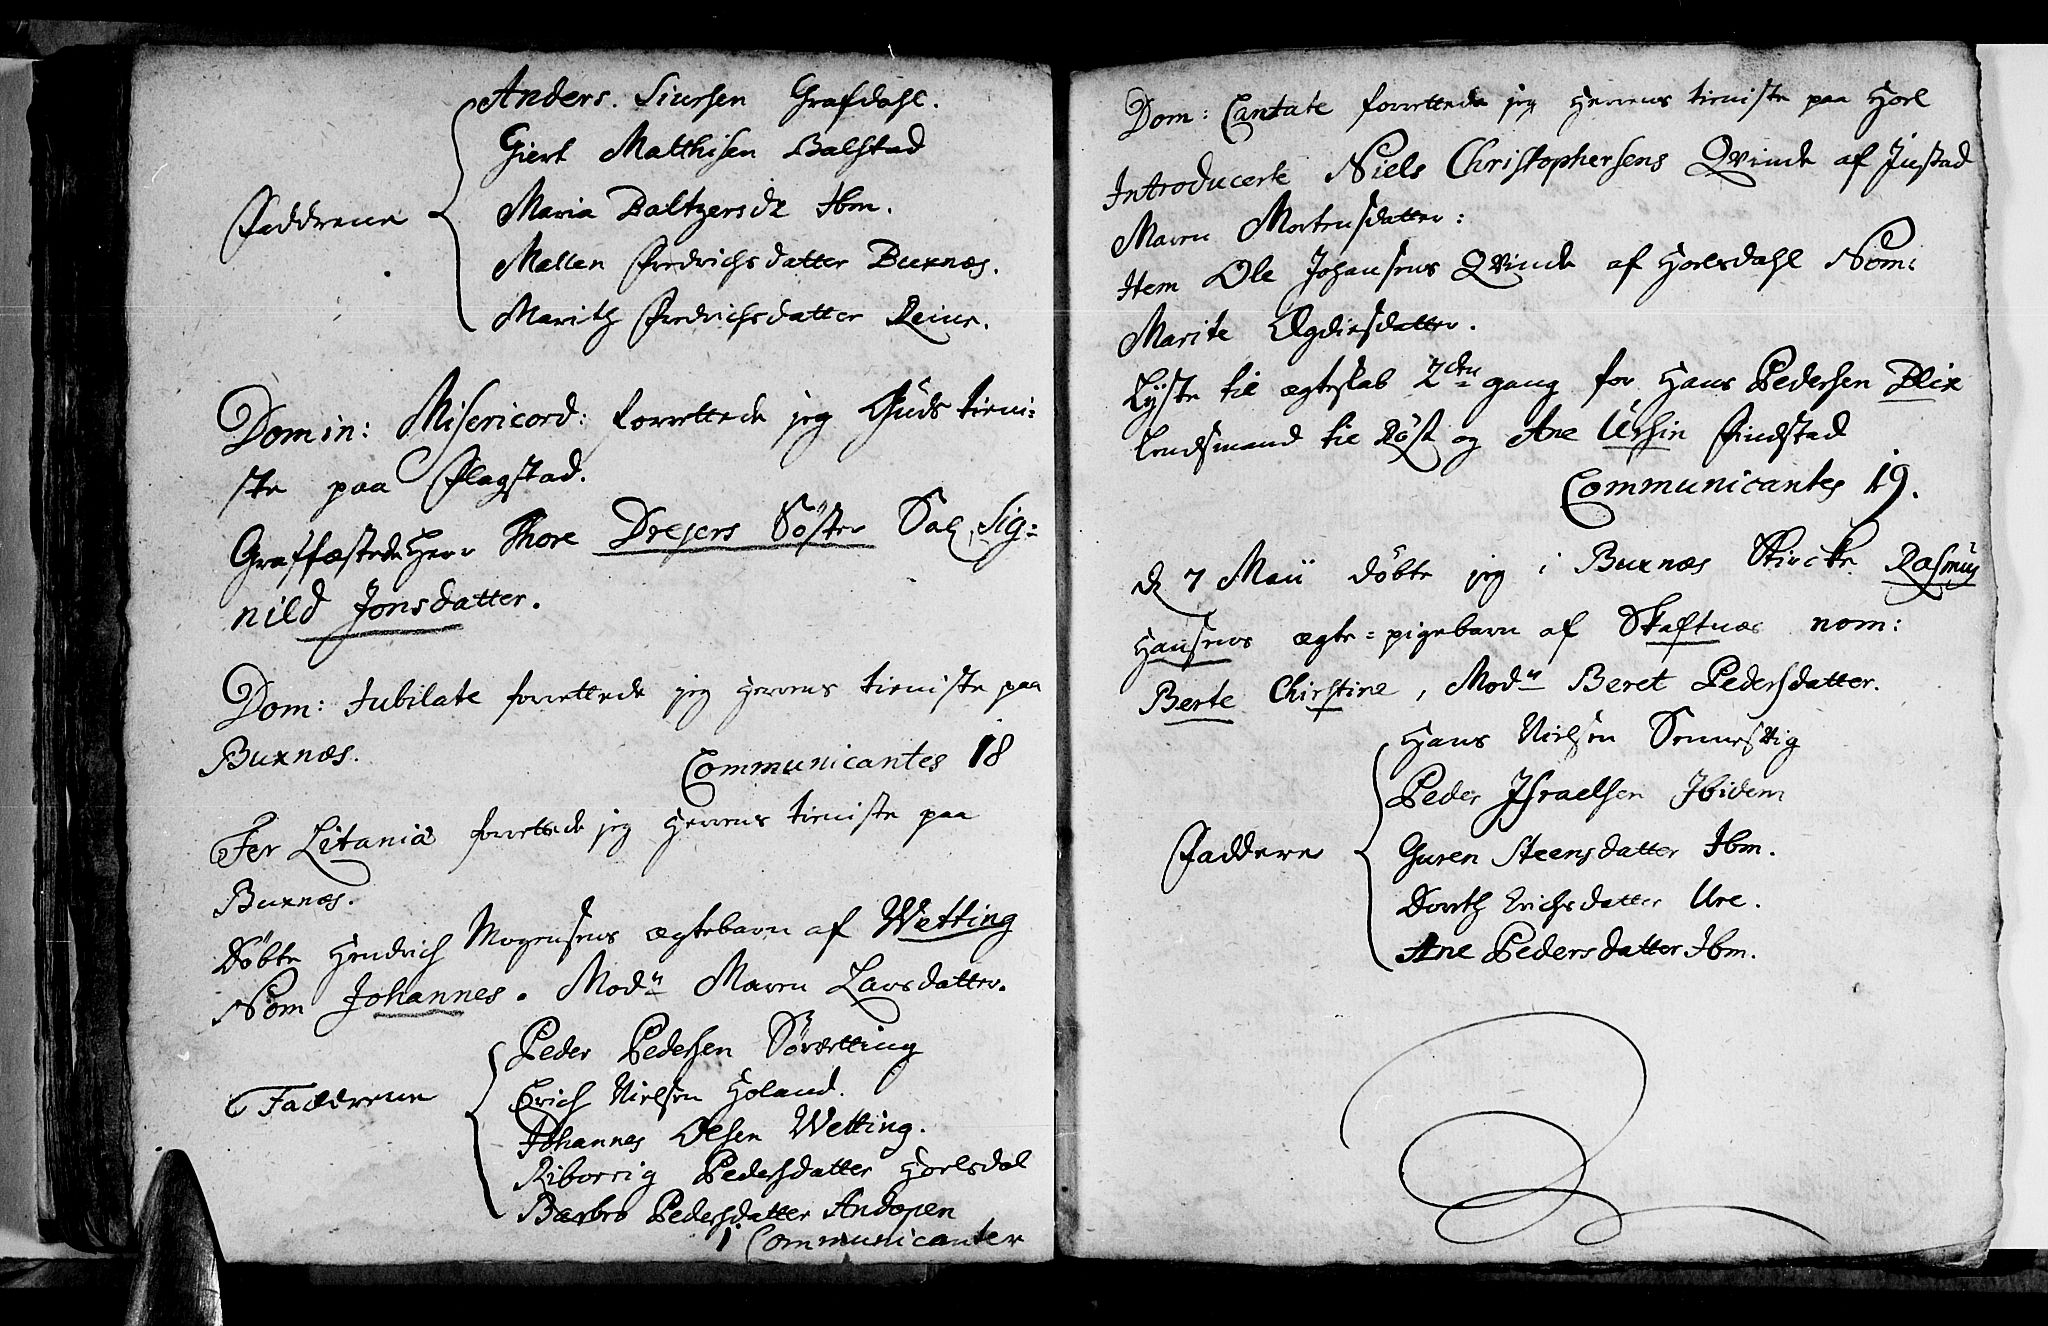 Anders. Siursen Grafdahl.
Giert Matthisen Balstad
Fadderne Maria Baltzersdr Ibm.
Mallen Fredrichsdatter Buxnæs.
Marith Fredrichsdatter Reine.
Domin: Misericord: forrettede jeg Guds tieni-
ste paa Flagstad.
Graffæstede Herr Thore Drejers Söster Sal. Sig-
nild Jonsdatter.
Dom: Jubilate forrettede jeg Herrens tieniste paa
Buxnæs. Communicantes 18
Fer Litania forrettede jeg Herrens tieniste paa
Buxnæs.
Döbte Hendrich Mogensens ægtebarn af Wetting
Nom Johannes. Modn Maren Larsdatter.
Peder Pedersen Sörvetting
Fadderne Erich Nielsen Holand.
Johannes Olsen Wetting.
Riborrig Pedersdatter Horlsdal
Barbro Pedersdatter Andopen
1 Communicanter
Dom: Cantate forrettede jeg Herrens tieniste paa Horl
Introducerte Niels Christophersens Qvinde af Justad
Maren Mortensdatter:
Item Ole Johansens Qvinde af Horlsdahl Nom:
Marite Ægdiesdatter.
Lyste til ægteskab 2den gang for Hans Pedersen Blix
Lendsmand til Röst og Ane Ursin Findstad
Communicantes 19.
d 7 Maii döbte jeg i Buxnæs Kircke Rasmus
Hansens ægte-pigebarn af Skaftnæs nom:
Berte Chirstine, Modn Beret Pedersdatter.
Hans Nielsen Sennesvig
Peder Jsraelsen Jbidem
Faddere Guren Steensdatter Ibm.
Dorth Erichsdatter Ure.
Ane Pedersdatter Ibm.